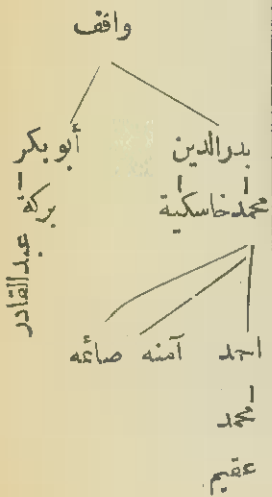 واقف
بدرالدين أبو بكر
محمد خاسكية بركة
عبد القادر
احمد آمنه صائمه
محمد
عقيم